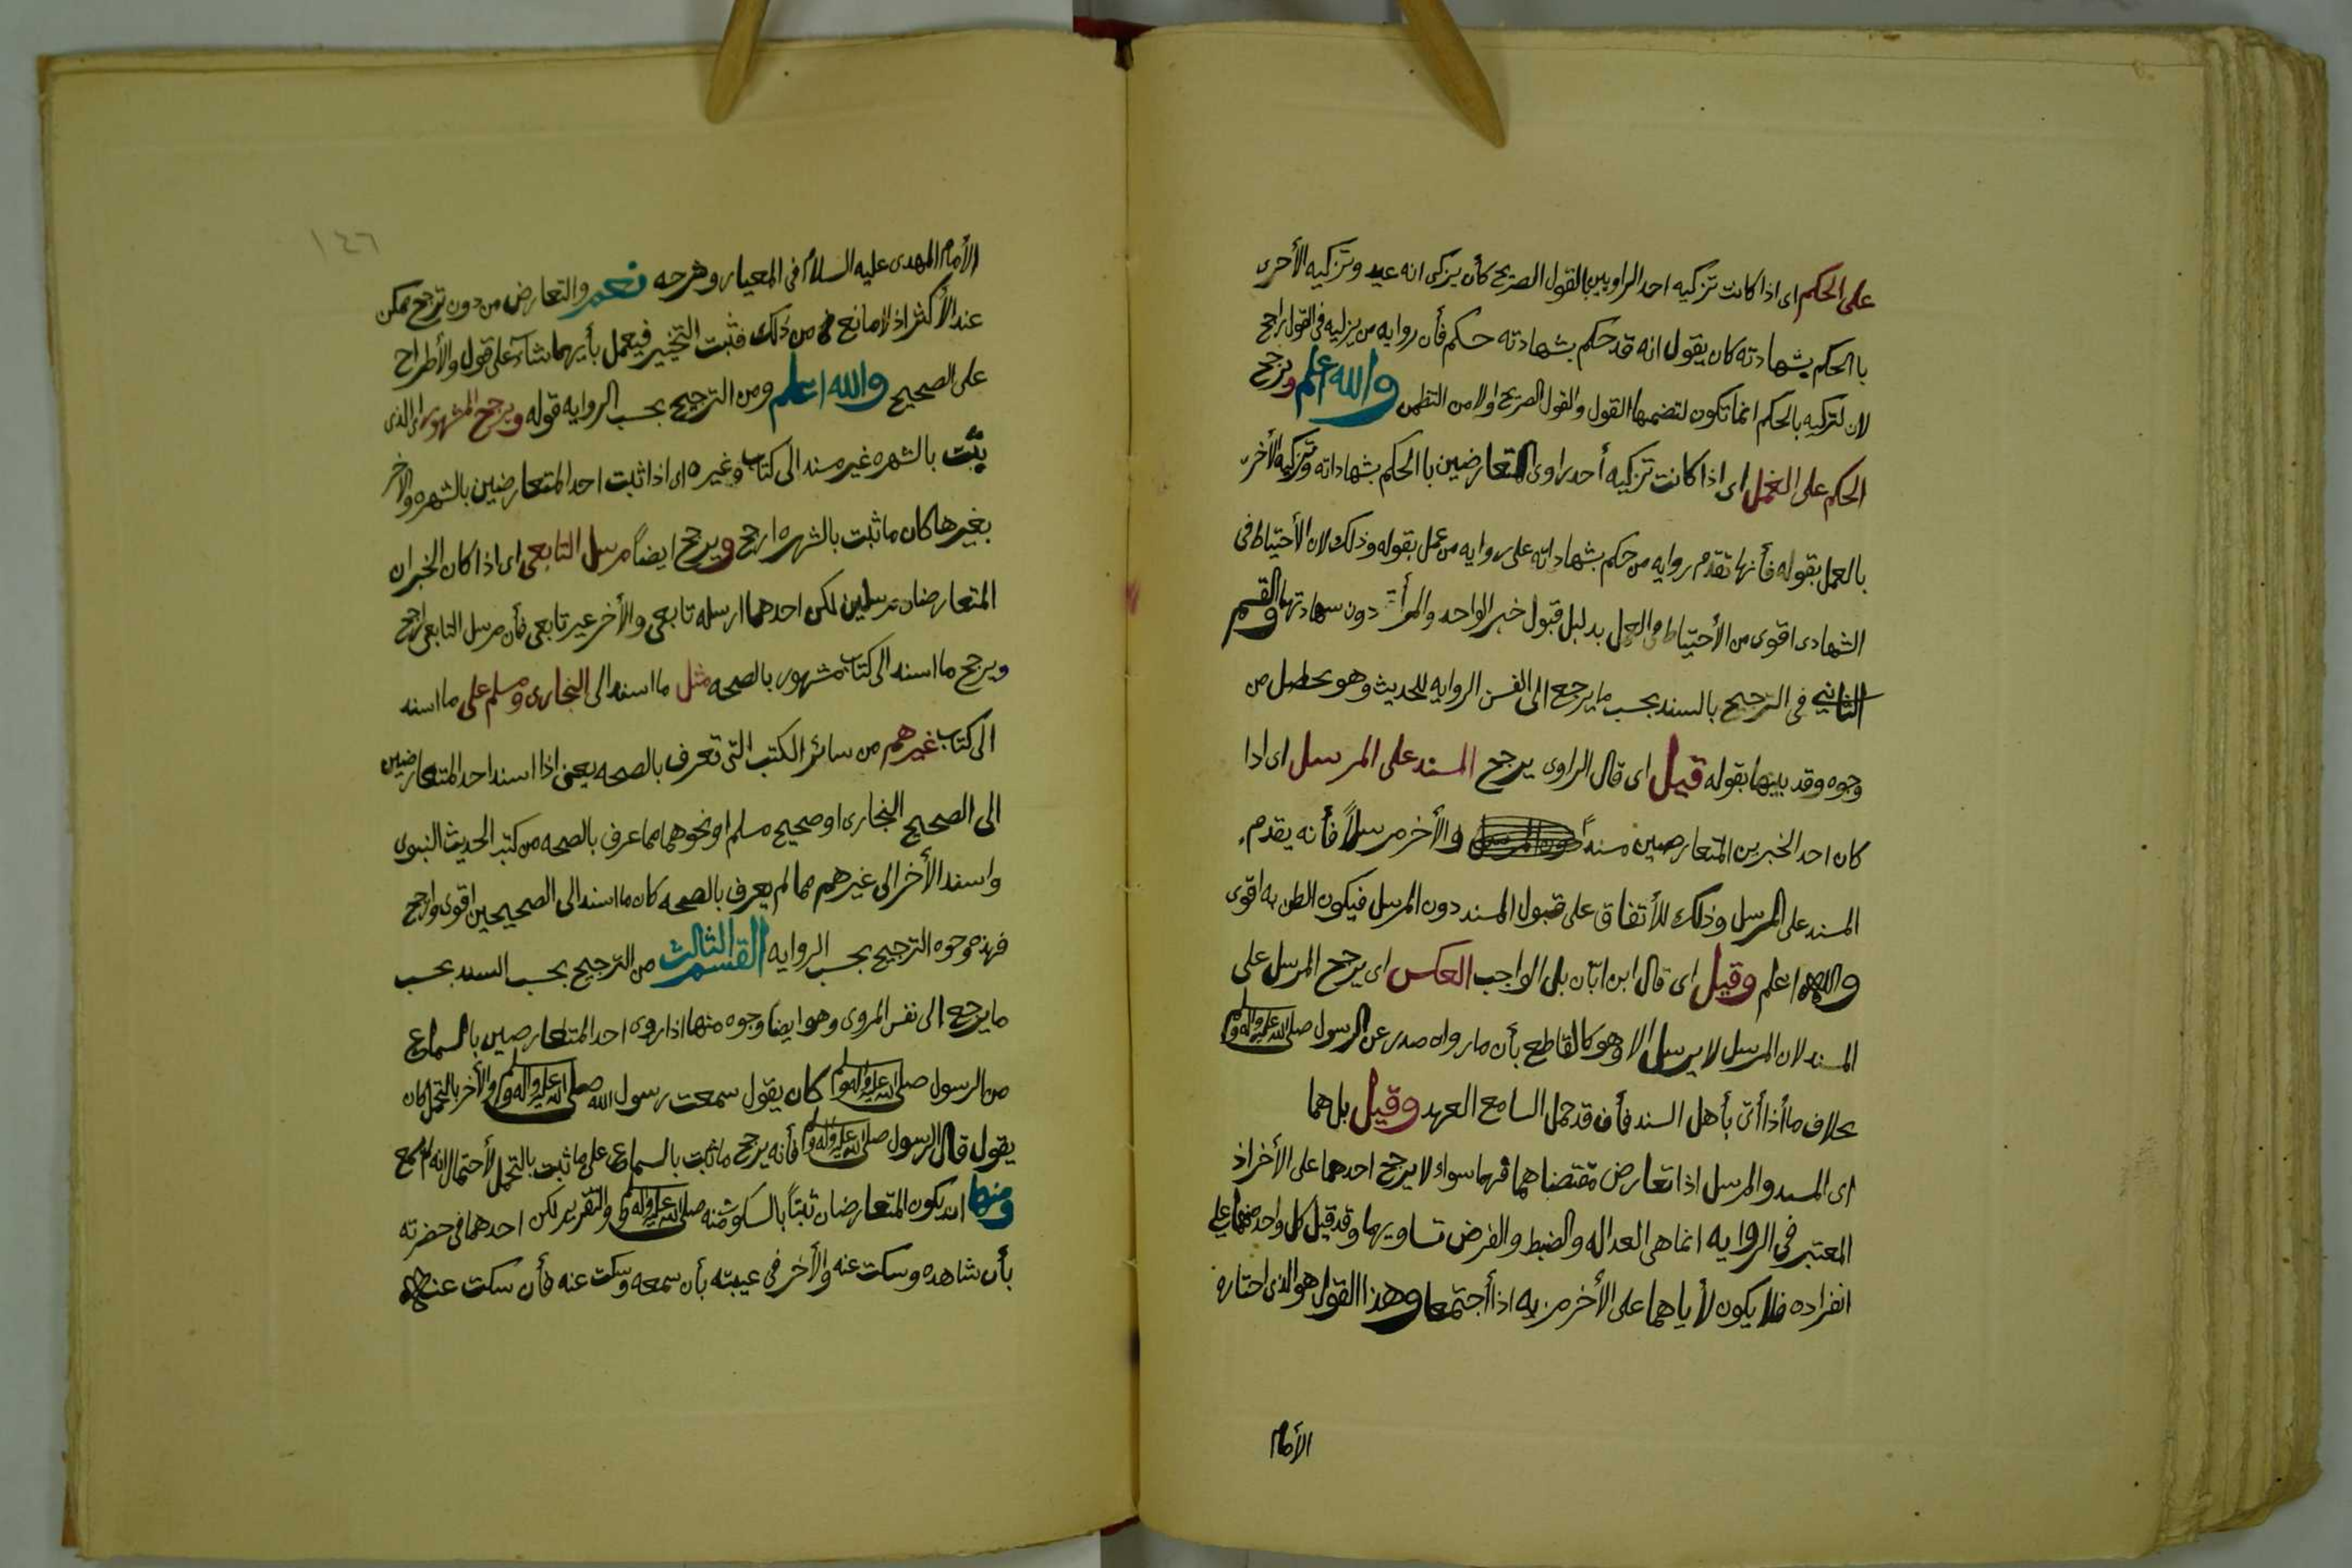 على الحكم اى اذا كانت تزكيه احد الراويين بالقول الصريح كأن يزكى انه عيد وتزكيه الأخرى
با الحكم بشهادته كان يقول انه قد حكم بشهادته حكم فأن روايه من يزليه فى القول راجح
لان لتركيه بالحكم انما تكون لتضمنها القول والقول الصريح اولا من التظمن والله اعلم ويرجح
الحكم على العمل اى اذا كانت تزكيه أحد راوى المتعارضين با الحكم بشهاداته وتزكيه الأخرى
بالعمل بقوله فأنها تقدم روايه من حكم بشهاداته على روايه من عمل بقوله وذلك لان الأحتياط فى
الشهادى اقوى من الأحتياط فى العمل بدليل قبول خبر الواحد والمرأة دون سهادتها القسم
الثانى فى الترجيح بالسند بحسب ما يرجع الى الفس الروايه للحديث وهو يحصل من
وجوه وقد بينها بقوله قيل اى قال الراوى يرجح المسند على المرسل اى اذا
كان احد الخبرين المتعارضين مسنداً والأخر مرسلاً فأنه يقدم
المسند على المرسل وذلك للأتفاق على قبول المسند دون المرسل فيكون الظن به اقوى
والله اعلم وقيل اى قال ابن ابّان بل الواجب العكس اى يرجح المرسل على
المسند لان المرسل لا يرسل الا وهو كالقاطع بأن ما رواه صدر عن الرسول صلى الله عليه واله وسلم
بخلاف ما أذا أتى بأهل السند فأن قد حمل السامع العهد وقيل بل هما
اى المسند والمرسل اذا تعارض مقتضاهما فهما سواء لا يرجح احدهما على الأخر اذ
المعتبر فى الروايه انما هى العداله والضبط والفرض تساويهما وقد قيل كل واحد منهما على
انفراده فلا يكون لأياهما على الأخر مزيه اذا أجتمعا وهذا القول هو الذى اختاره
الأمام
١٤٦
الأمام المهدى عليه السلام فى المعيار وشرحه نعم والتعارض من دون ترجح ممكن
عند الأكثر اذ لا مانع من ذلك فثبت التخيير فيعمل بأيهما شآء على قول والأطراح
على الصحيح والله اعلم ومن الترجيح بحسب الروايه قوله ويرجح المشهور اى الذى
يثبت بالشهره غير مسند الى كتاب وغيره اى اذا ثبت احد المتعارضين بالشهره والاخر
بغيرها كان ما ثبت بالشهره ارجح ويرجح ايضاً مرسل التابعى اى اذا كان الخبران
المتعارضان مرسلين لكن احدهما ارسله تابعى والأخر غير تابعى فأن مرسل التابعى ارجح
ويرجح ما اسند الى كتاب مشهور بالصحه مثل ما اسند الى البخارى ومسلم على ما اسند
الى كتاب غيرهم من سائر الكتب التى تعرف بالصحه يعنى اذا اسند احد المتعارضين
الى الصحيح البخارى او صحيح مسلم او نحوهما مما عرف بالصحه من كتب الحديث النبوى
واسند الأخر الى غيرهم مما لم يعرف بالصحه كان ما اسند الى الصحيحين اقوى وارجح
فهذه وجوه الترجيح بحسب الروايه القسم الثالث من الترجيح بحسب السند بحسب
ما يرجع الى نفس المروى وهو ايضاً وجوه منها اذا روى احد المتعارضين بالسماع
من الرسول صلى الله عليه واله وسلم كان يقول سمعت رسول الله صلى الله عليه واله وسلم والأخر بالتحمل كان
يقول قال الرسول صلى الله عليه واله وسلم فأنه يرجح ما ثبت بالسماع على ما ثبت بالتحمل لأحتمال انه لم يسمع
ومنها ان يكون المتعارضان ثبتاً بالسكوت منه صلى الله عليه واله وسلم والتقرير لكن احدهما فى حضرته
بأن شاهده وسكت عنه والأخر فى غيبته بأن سمعه وسكت عنه فأن سكت عنه